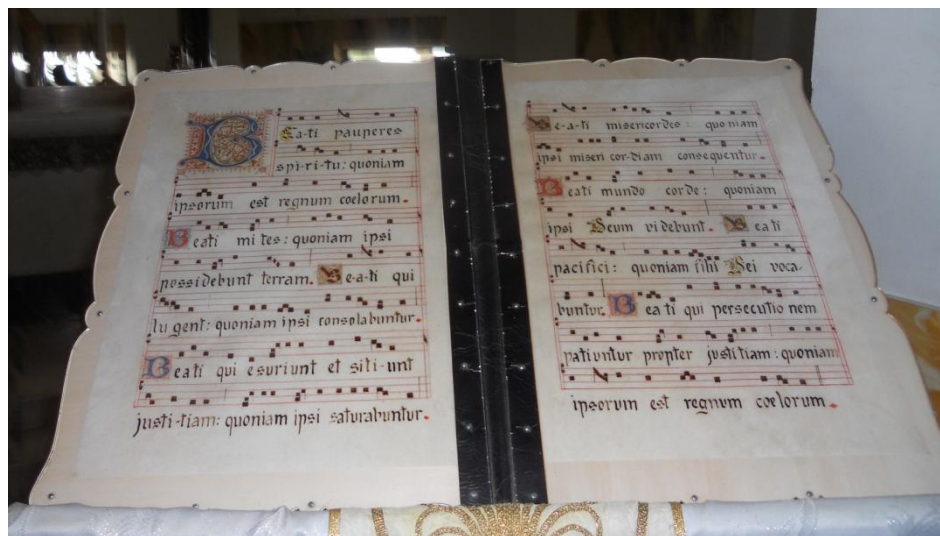 Bea-ti pauperes
spi-ri-tu: quoniam
ipsorum est regnum coelorum.
Beati mi tes: quoniam ipsi
possidebunt terram. Be-a-ti qui
lu gent: quoniam ipsi consolabuntur.
Beati qui esuriunt et siti-unt
justi-tiam: quoniam ipsi saturabuntur.
Be-a-ti misericordes: quoniam
ipsi miseri cor-diam consequentur.
Beati mundo corde: quoniam
ipsi Deum videbunt. Beati
pacifici: quoniam filii Dei voca-
buntur. Beati qui persecutio nem
patiuntur propter justitiam: quoniam
ipsorum est regnum coelorum.